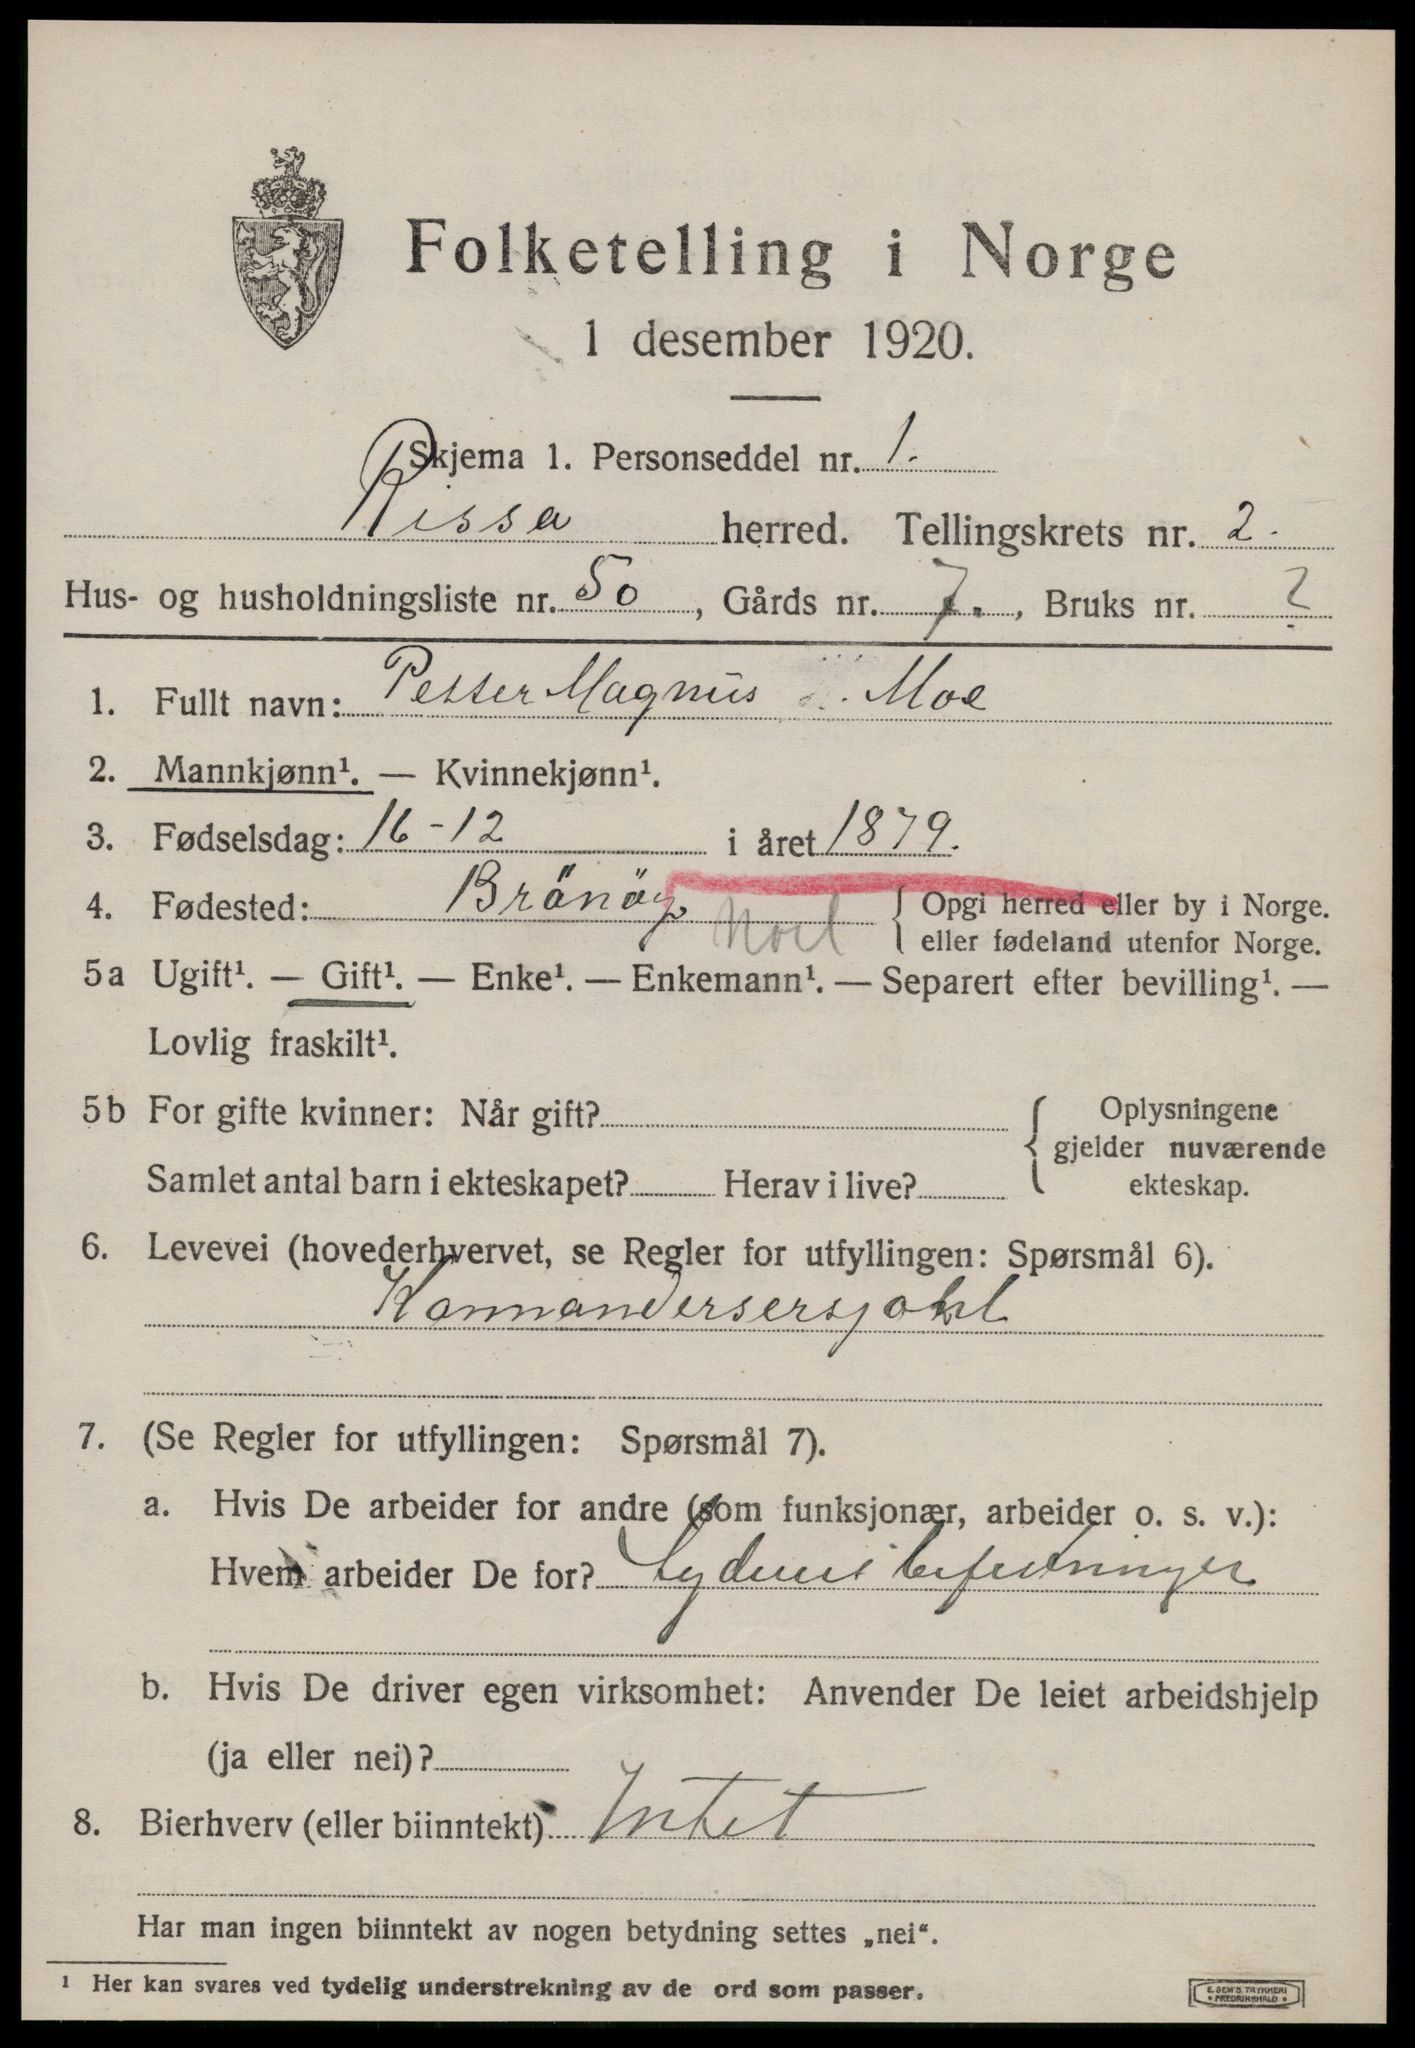 Folketelling i Norge
1 desember 1920.
Skjema 1. Personseddel nr. 1.
Rissa herred. Tellingskrets nr. 2.
Hus- og husholdningsliste nr. 50, Gårds nr. 7., Bruks nr. ?
1. Fullt navn: Petter Magnus Moe
2. Mannkjønn¹. — Kvinnekjønn¹.
3. Fødselsdag: 16-12 i året 1879.
4. Fødested: Brönöy Nord { Opgi herred eller by i Norge.
eller fødeland utenfor Norge.
5a Ugift¹. — Gift¹. — Enke¹. — Enkemann¹. — Separert efter bevilling¹. —
Lovlig fraskilt¹.
5b For gifte kvinner: Når gift? { Oplysningene
gjelder nuværende
Samlet antal barn i ekteskapet? Herav i live? ekteskap.
6. Levevei (hovederhvervet, se Regler for utfyllingen: Spørsmål 6).
Kommandersersjant
7. (Se Regler for utfyllingen: Spørsmål 7).
a. Hvis De arbeider for andre (som funksjonær, arbeider o. s. v.):
Hvem arbeider De for? befestninger
b. Hvis De driver egen virksomhet: Anvender De leiet arbeidshjelp
(ja eller nei)?
8. Bierhverv (eller biinntekt) Intet
Har man ingen biinntekt av nogen betydning settes „nei“.
¹ Her kan svares ved tydelig understrekning av de ord som passer.
E. SEM'S TRYKKERI
• FREDRIKSHALD •